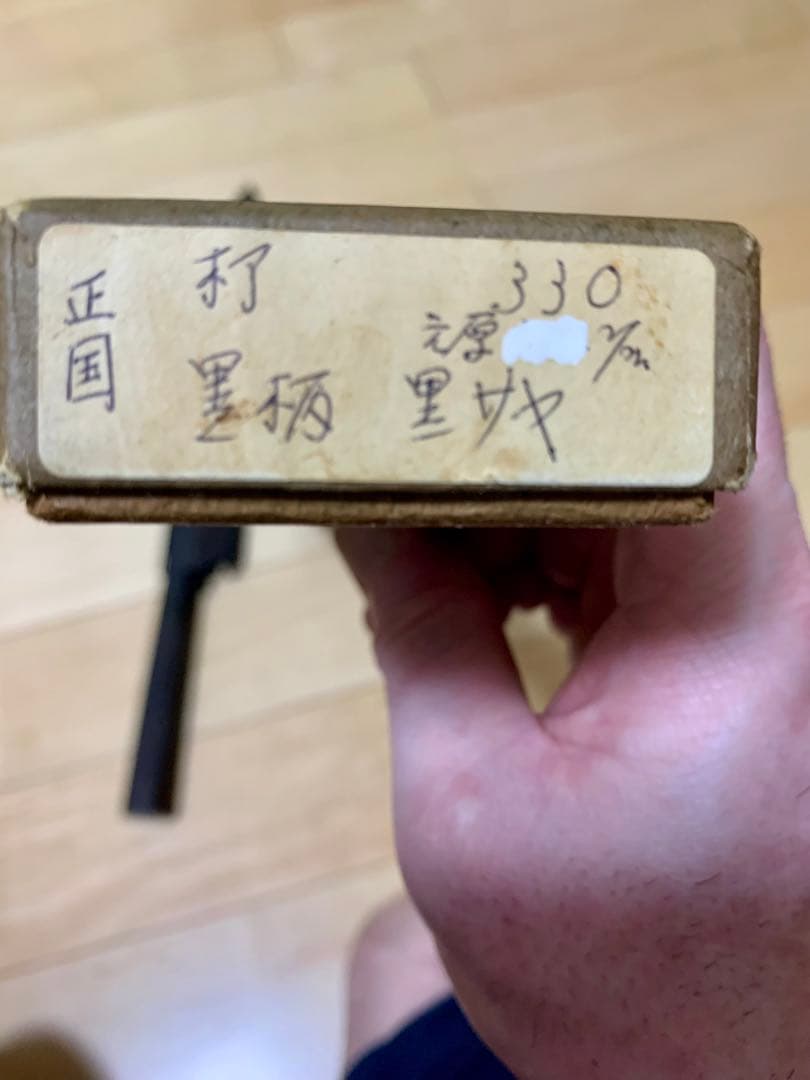 正国
330
元厚 m/m
黒柄 黒サヤ